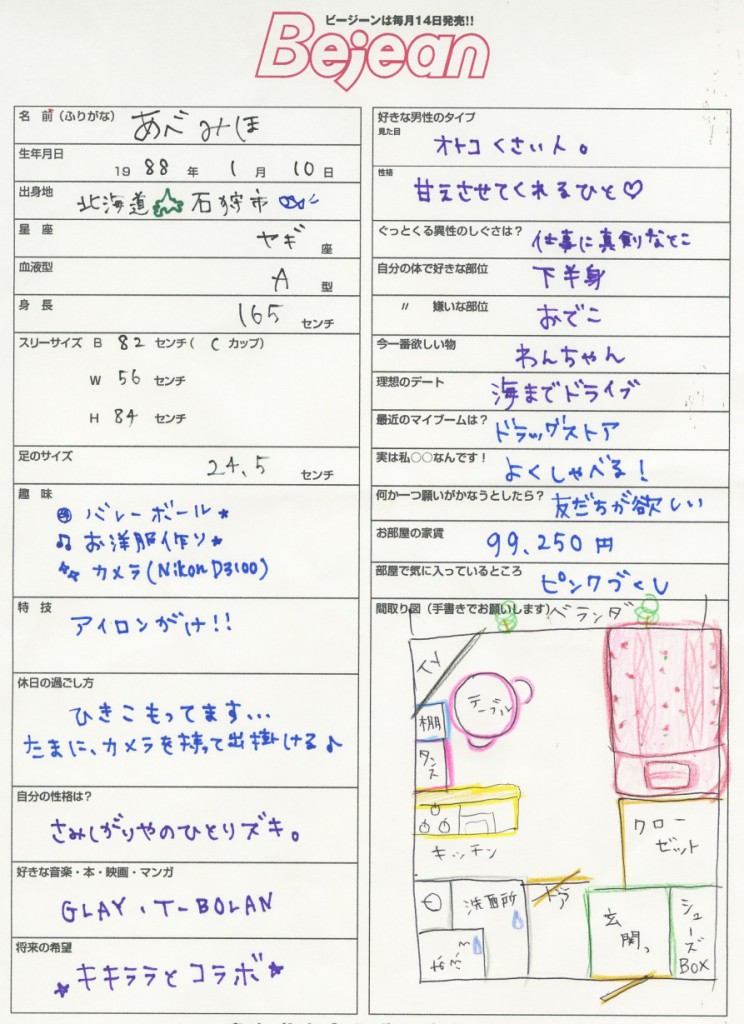 ビージーンは毎月14日発売!!
Bejean
名 前(ふりがな) あべ みほ
生年月日
1988年 1月 10日
出身地 北海道 石狩市
星 座 ヤギ 座
血液型 A 型
身 長 165 センチ
スリーサイズ B 82 センチ( C カップ)
W 56 センチ
H 84 センチ
足のサイズ 24.5 センチ
趣 味
バレーボール★
♫ お洋服作り★
カメラ(Nikon D3100)
特 技
アイロンがけ!!
休日の過ごし方
ひきこもってます…
たまに、カメラを持って出掛ける♪
自分の性格は?
さみしがりやのひとりズキ。
好きな音楽・本・映画・マンガ
GLAY、T-BOLAN
将来の希望
★キキララとコラボ★
好きな男性のタイプ
見た目
オトコくさい人。
性格
甘えさせてくれるひと♡
ぐっとくる異性のしぐさは? 仕事に真剣なとこ
自分の体で好きな部位 下半身
〃 嫌いな部位 おでこ
今一番欲しい物 わんちゃん
理想のデート 海までドライブ
最近のマイブームは? ドラッグストア
実は私○○なんです! よくしゃべる!
何か一つ願いがかなうとしたら? 友だちが欲しい
お部屋の家賃 99,250円
部屋で気に入っているところ ピンクづくし
間取り図(手書きでお願いします)
ベランダ
TV
テーブル
棚
タンス
キッチン
クローゼット
洗面所
ドア
玄関
シューズBOX